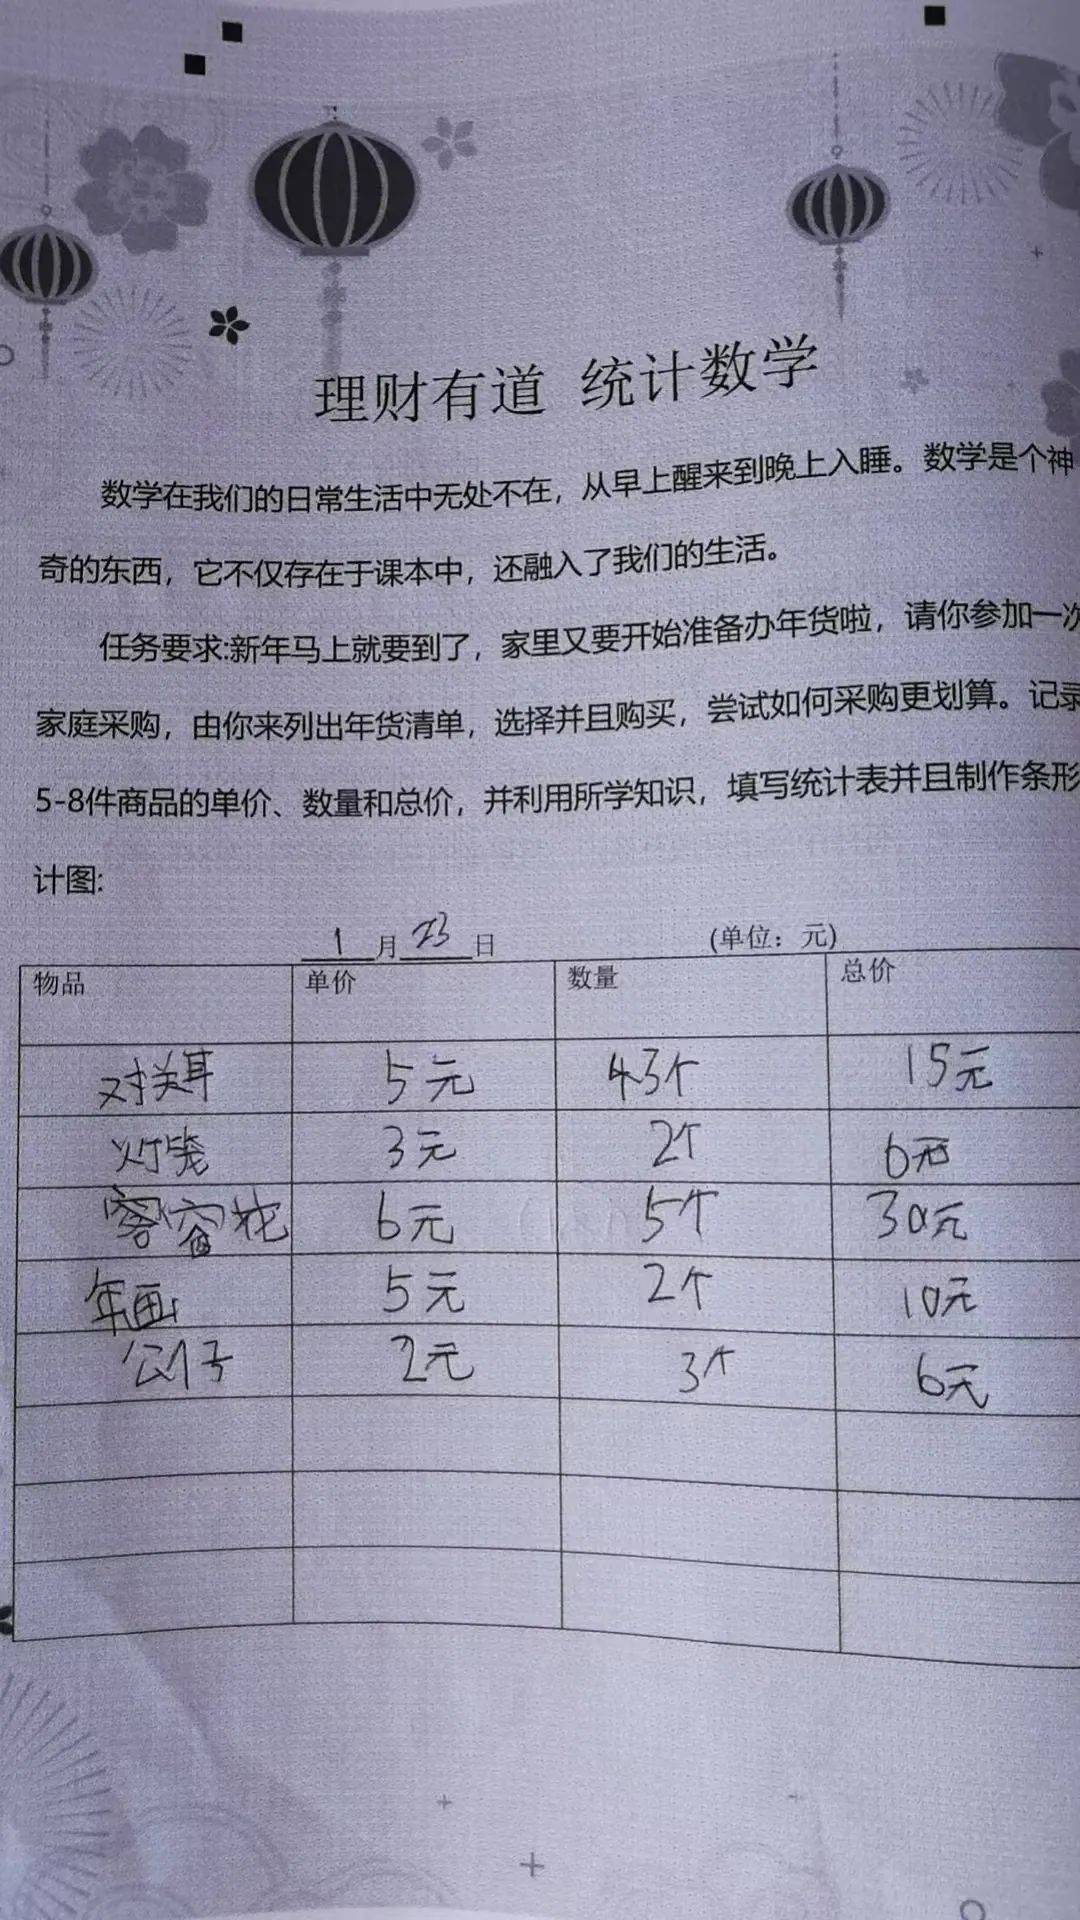 理财有道 统计数学
数学在我们的日常生活中无处不在，从早上醒来到晚上入睡。数学是个神
奇的东西，它不仅存在于课本中，还融入了我们的生活。
任务要求:新年马上就要到了，家里又要开始准备办年货啦，请你参加一次
家庭采购，由你来列出年货清单，选择并且购买，尝试如何采购更划算。记录
5-8件商品的单价、数量和总价，并利用所学知识，填写统计表并且制作条形
计图:
1月23日 (单位：元)
物品 单价 数量 总价
对关耳 5元 3个 15元
灯笼 3元 2个 6元
窗花 6元 5个 30元
年画 5元 2个 10元
2元 3个 6元